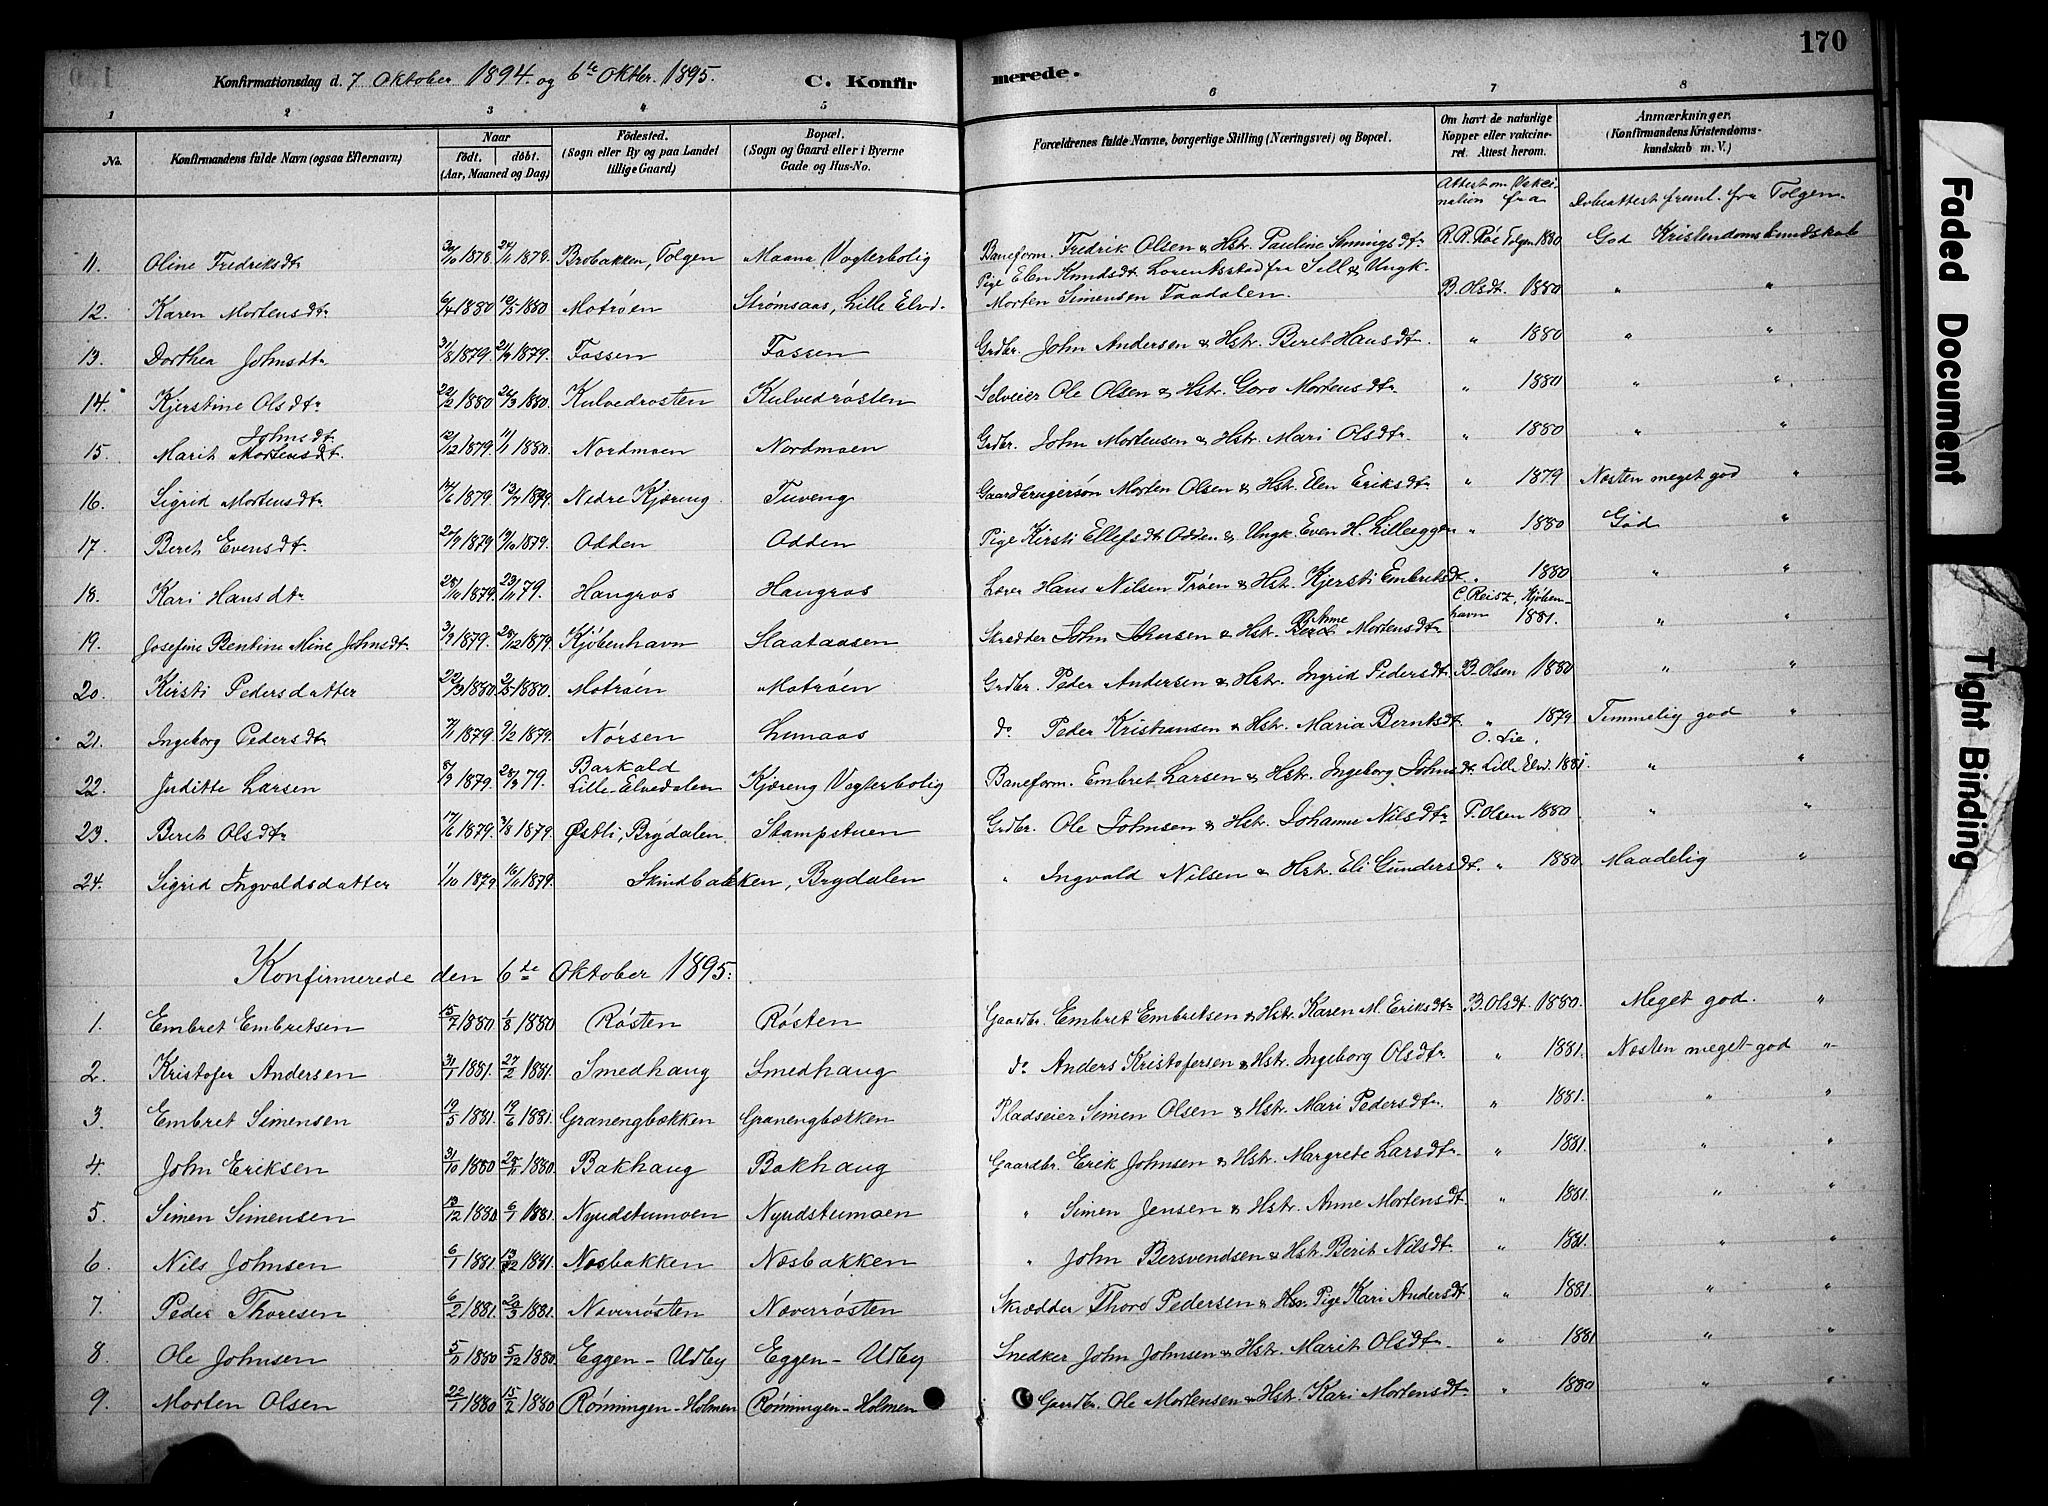 170
Konfirmationsdag d. 7 Oktober 1894. og 6te Oktbr. 1895. C. Konfirmerede.
1 2 3 4 5 6 7 8
No. Konfirmandens fulde Navn (ogsaa Efternavn) Naar født. døbt. (Aar, Maaned og Dag) Fødested. (Sogn eller By og paa Landet tillige Gaard) Bopæl. (Sogn og Gaard eller i Byerne Gade og Hus-No. Forældrenes fulde Navne, borgerlige Stilling (Næringsvei) og Bopæl. Om havt de naturlige Kopper eller vakcineret. Attest herom. Anmærkninger. (Konfirmandens Kristendomskundskab m. V.)
Attest om Vakcination fra Dobeattest freml. fra Tolgen.
11. Oline Fredriksdtr 1878 1879. Brobakken, Tolgen Maana Vogterbolig Baneform. Fredrik Olsen & Hstr. Pauline R. R. Røe Tolgen 1880 God Kristendomskundskab
12. Karen Mortensdtr 6/4 1880 1880 Motrøen Strømsaas, Lille Elvd. Pige Elen Knudsdt. fra Sell & Ungk. Morten Simensen Taadalen. B. Olsdt. 1880 " "
13. Dorthea Johnsdtr 31/8 1879. 21/9 1879. Fossen Fossen Grdbr. John Andersen & Hstr. Beret Hansdtr. " 1880 " "
14. Kjerstine Olsdtr 22/2 1880 1880. Kulvedrøsten Kulvedrøsten Selveier Ole Olsen & Hstr. Goro Mortensdtr. " 1880 " "
15. Marit Johnsdtr. Mortensdtr. 12/12 1879. 11/1 1880. Nordmoen Nordmoen Grdbr. John Mortensen & Hstr. Mari Olsdtr. " 1880 " "
16. Sigrid Mortensdtr 1879. 13/7 1879. Nedre Kjæreng Tuveng Gaardbrugersøn Morten Olsen & Hstr. Elen Eriksdtr " 1879 Næsten meget god "
17. Beret Evensdtr. 20/9 1879 1879. Odden Odden Pige Kirsti Ellefsdtr Odden & Ungk. Even H. Lilleeggen " 1880 God "
18. Kari Hansdtr 1879. 23/11 79. Haugros Haugros Lærer Hans Nilsen Trøen & Hstr. Kjersti Embretsdt. " 1880 " "
19. Josefine Bentine Mine Johnsdtr. 3/9 1879. 28/12 1879. Kjøbenhavn Slaataasen Skrædder John & Hstr. Mortensdtr C. Reisz, Kjøbenhavn 1881. " "
20. Kirsti Pedersdatter 22/3 1880. 2/5 1880. Motrøen Motrøen Grdbr. Peder Andersen & Hstr. Ingrid Pedersdtr. B. Olsen 1880 " "
21. Ingeborg Pedersdtr 1879. 9/2 1879. Nørsen Lumaas do Peder Kristiansen & Hstr. Maria Berntsdt. " 1879 Temmelig god "
22. Juditte Larsen 8/3 1879. 79. Barkald Lille-Elvedalen Kjæreng Vogterbolig Baneform. Embret Larsen & Hstr. Ingeborg Johnsdt. O. Lie, Lille Elvd. 1881. " "
23. Beret Olsdtr 17/6 1879. 3/8 1879. Østli, Brydalen. Stampstuen Grdbr. Ole Johnsen & Hstr. Johanne Nilsdtr P. Olsen 1880 " "
24. Sigrid Ingvaldsdatter 1/10 1879 16/11 1879. Skindbakken, Brydalen " Ingvald Nilsen & Hstr. Eli Gundersdt. " 1880. Maadelig "
Konfirmerede den 6de Oktober 1895.
1. Embret Embretsen 15/7 1880 1/8 1880 Røsten Røsten Gaardbr. Embret Embretsen & Hstr. Karen M. Eriksdtr B. Olsdt. 1880. Meget god. "
2. Kristofer Andersen 31/1 1881. 27/2 1881. Smedhaug Smedhaug do Anders Kristofersen & Hstr. Ingeborg Olsdtr " 1881. Næsten meget god "
3. Embret Simensen 19/5 1881. 19/6 1881. Granengbækken Granengbækken Pladseier Simen Olsen & Hstr. Mari Pedersdtr. " 1881. " "
4. John Eriksen 31/10 1880 1880. Bakhaug Bakhaug Gaardbr. Erik Johnsen & Hstr. Margrete Larsdtr. " 1881. " "
5. Simen Simensen 13/12 1880. 6/1 1881. Nyudstumoen Nyudstumoen " Simen Jensen & Hstr. Anne Mortensdt. " 1881. " "
6. Nils Johnsen 6/1 1881. 13/2 1881. Næsbakken Næsbakken " John Bersvendsen & Hstr. Berit Nilsdt. " 1881. " "
7. Peder Thoresen 6/2 1881. 1881. Næverrøsten Næverrøsten Skrædder Thore Pedersen & Hstr. Pige Kari Andersdt " 1881. " "
8. Ole Johnsen 5/11 1880 5/12 1880. Eggen-Udby Eggen-Udby Snedker John Johnsen & Hstr. Marit Olsdtr. " 1881 " "
9. Morten Olsen 22/1 1880 15/2 1880 Rømmingen-Holmen Rømmingen-Holmen Gaardbr. Ole Mortensen & Hstr. Kari Mortensdt. " 1880 " "
Faded Document
Tight Binding